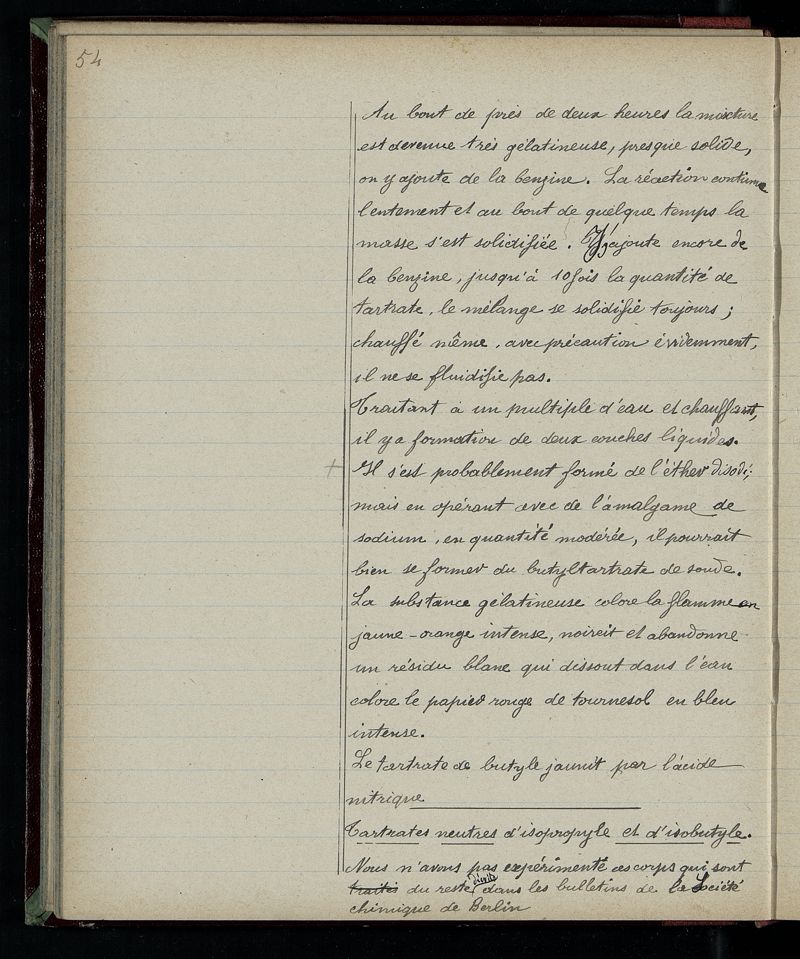 54
Au bout de près de deux heures la mixture
est devenue très gélatineuse, presque solide,
on y ajoute de la benzine. La réaction continue
lentement et au bout de quelque temps la
masse s'est solidifiée. J'y ajoute encore de
la benzine, jusqu'à 10 fois la quantité de
tartrate, le mélange se solidifie toujours;
chauffé même, avec précaution évidemment,
il ne se fluidifie pas.
Traitant à un multiple d'eau et chauffant,
il y a formation de deux couches liquides.
+ Il s'est probablement formé de l'éther disodé;
mais en opérant avec de l'amalgame de
sodium, en quantité modérée, il pourrait
bien se former du butyltartrate de soude.
La substance gélatineuse colore la flamme en
jaune-orange intense, noircit et abandonne
un résidu blanc qui dissout dans l'eau
colore le papier rouge de tournesol en bleu
intense.
Le tartrate de butyle jaunit par l'acide
nitrique
Tartrates neutres d'isopropyle et d'isobutyle.
Nous n'avons pas expérimenté ces corps qui sont
traités du reste décrits dans les bulletins de la Société
chimique de Berlin